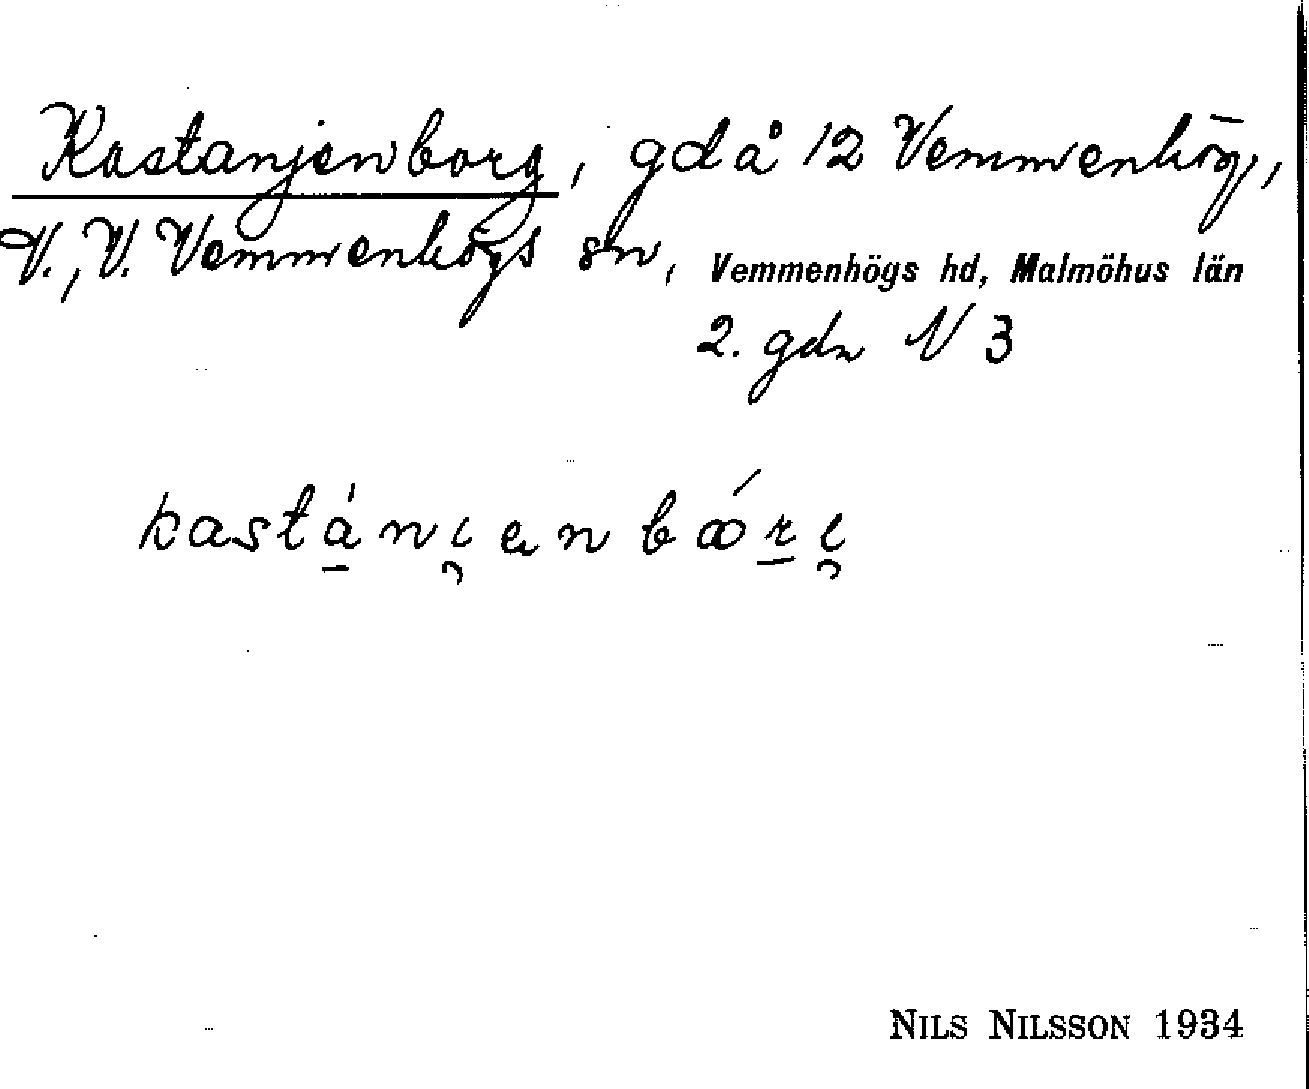 Kastanjenborg, gd å 12 Vemmenhög,
V., V. Vemmenhögs sn, Vemmenhögs hd, Malmöhus län
2. gdr N 3
kastá̱ni̯enbꝏ́ṟi̯
NILS NILSSON 1934